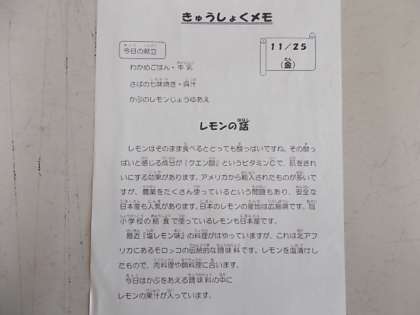 きゅうしょくメモ
11／25
（金）
今日の献立
わかめごはん・牛乳
さばの七味焼き・呉汁
かぶのレモンじょうゆあえ
レモンの話
レモンはそのまま食べるととっても酸っぱいですね。その酸っ
ぱいと感じる成分が『クエン酸』というビタミンCで、肌をきれ
いにする効果があります。アメリカから輸入されたものが多いで
すが、農薬をたくさん使っているという問題もあり、安全な
日本産も人気があります。日本のレモンの産地は広島県です。
小学校の給食で使っているレモンも日本産です。
最近『塩レモン味』の料理がはやっていますが、これは北アフ
リカにあるモロッコの伝統的な調味料です。レモンを塩漬けし
たもので、肉料理や魚料理に合います。
今日はかぶをあえる調味料の中に
レモンの果汁が入っています。